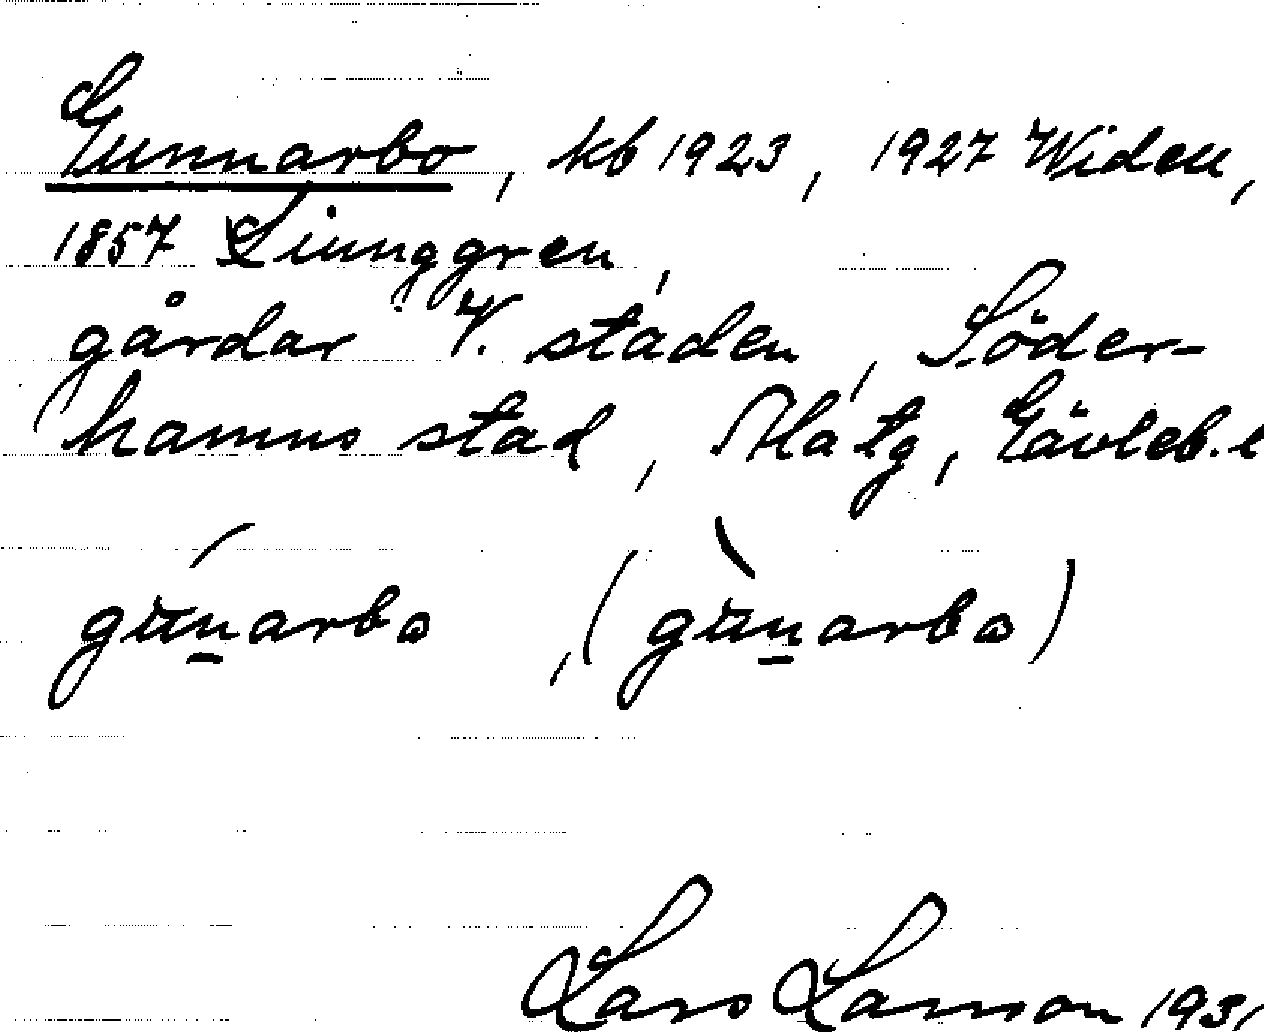 Gunnarbo, kb 1923, 1927 Widén,
1857 Ljunggren,
gårdar V. staden, Söder-
hamns stad, Ala tg, Gävleb. l
gunarbo, (gunarbo)
Lars Larsson 193